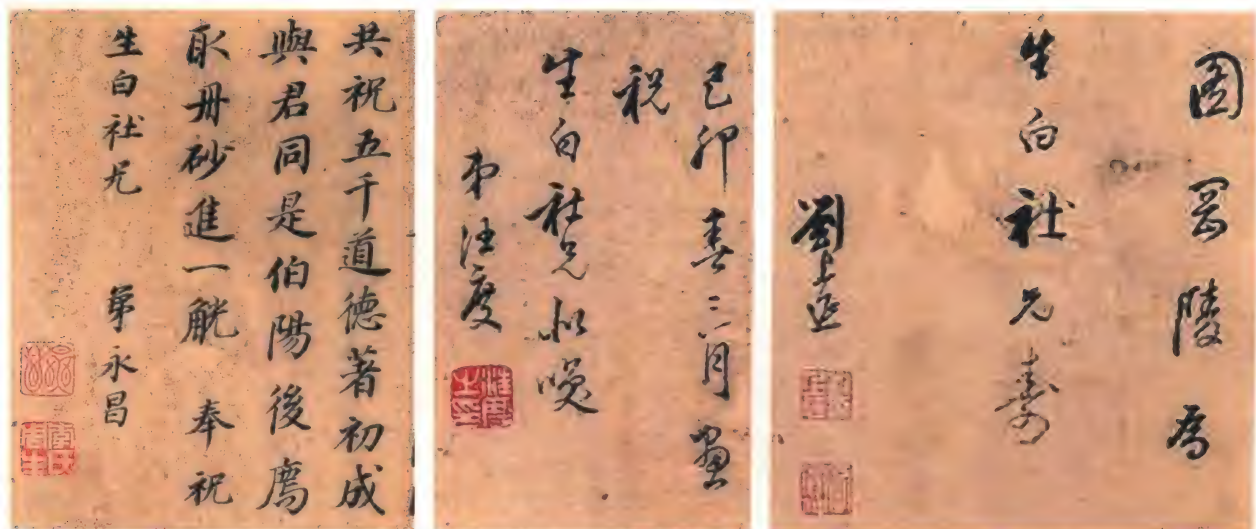 共祝五千道德著初成
與君同是伯陽後廌
取丹砂進一觥 奉祝
生白社兄 弟永昌
己卯春二月畫
祝
生白社兄似咲
弟汪度
圖岡陵為
生白社兄壽
劉上延